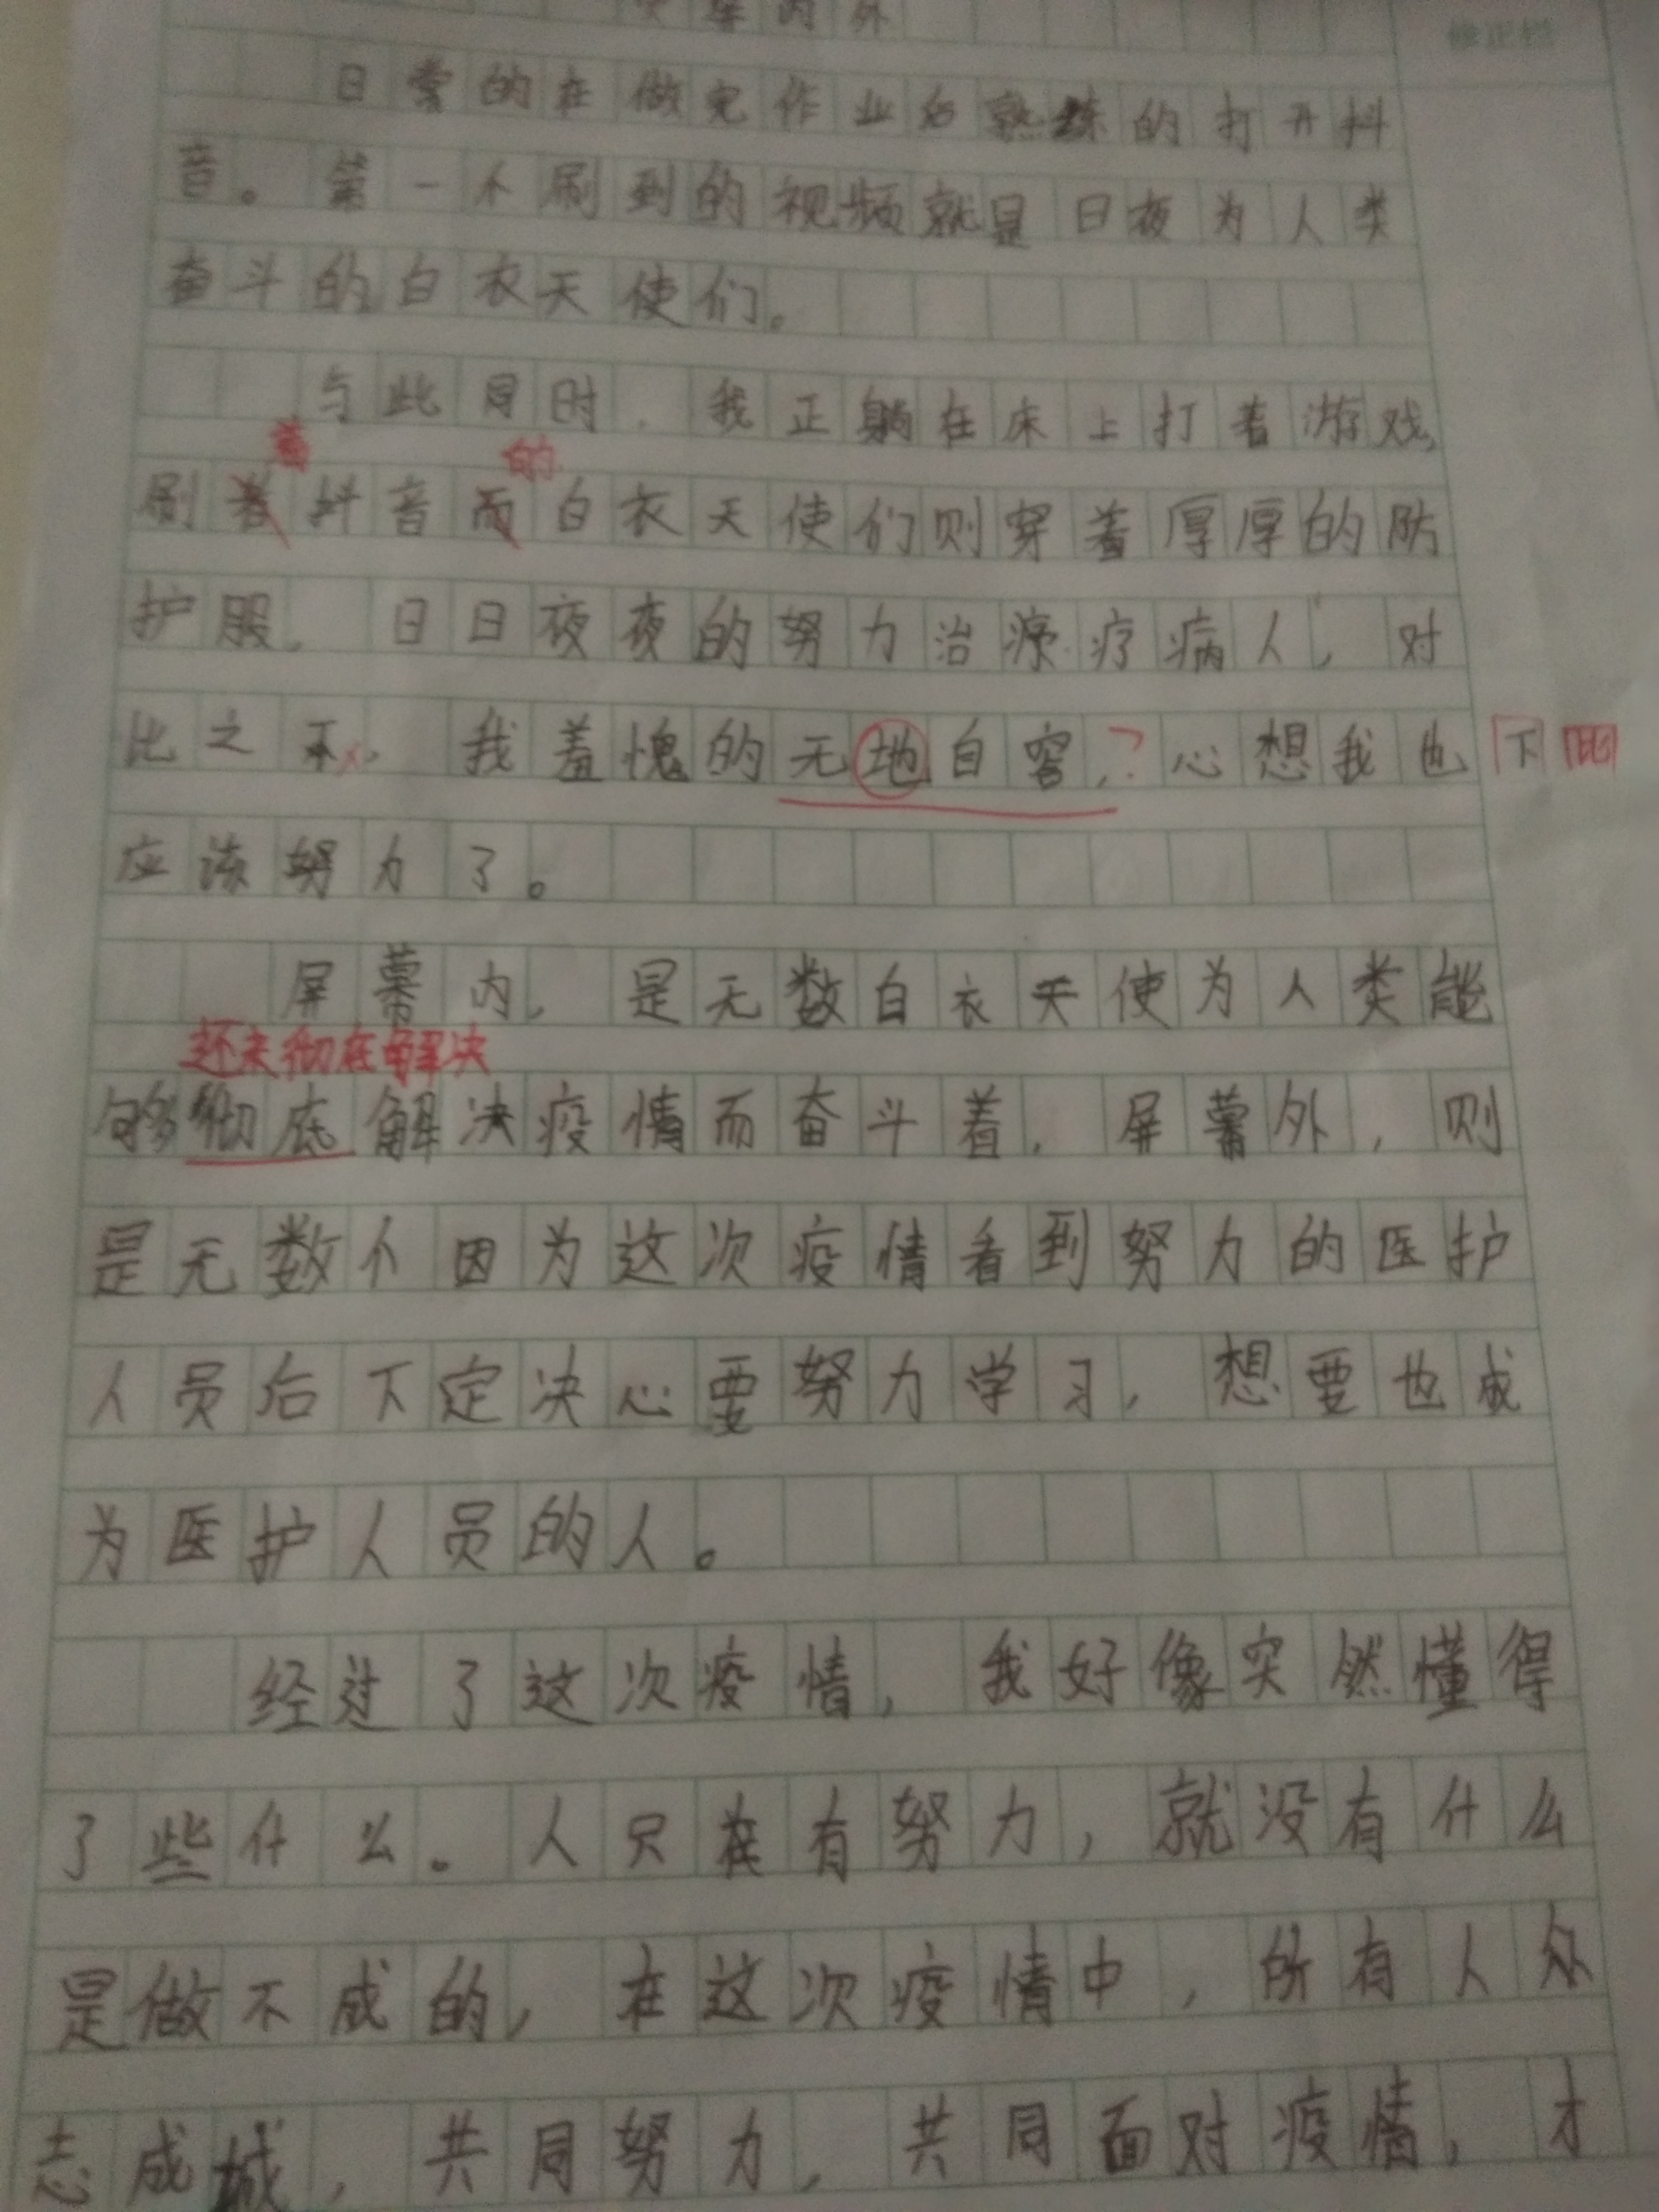 内外
修正栏
日常的在做完作业后熟练的打开抖
音。第一个刷到的视频就是日夜为人类
奋斗的白衣天使们。
与此同时,我正躺在床上打着游戏,
着 的
刷着抖音而白衣天使们则穿着厚厚的防
护服,日日夜夜的努力治疗病人,对
比之下,我羞愧的无地自容,?心想我也 下
应该努力了。
屏幕内,是无数白衣天使为人类能
还未彻底解决
够彻底解决疫情而奋斗着,屏幕外,则
是无数个因为这次疫情看到努力的医护
人员后下定决心要努力学习,想要也成
为医护人员的人。
经过了这次疫情,我好像突然懂得
了些什么。人只有努力,就没有什么
是做不成的,在这次疫情中,所有人众
志成城,共同努力,共同面对疫情,才